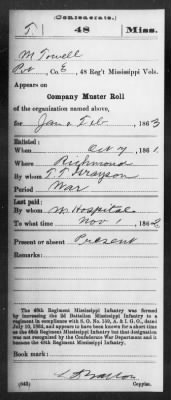 (Confederate.)
T. 48 Miss.
M Towell
Pvt, Co. E, 48 Reg't Mississippi Vols.
Appears on
Company Muster Roll
of the organization named above,
for Jan & Feb, 1863
Enlisted:
When Oct 7, 1861
Where Richmond
By whom T. T. Grayson
Period War
Last paid:
By whom M Hospital
To what time Nov 1, 1862
Present or absent Present
Remarks:
The 48th Regiment Mississippi Infantry was formed
by increasing the 2d Battalion Mississippi Infantry to a
regiment in compliance with S. O. No.
and appears to have been known for a short time
as the 48th Regiment Mississippi Infantry but this designation
was not recognized by the Confederate War Department and it
became the 48th Regiment Mississippi Infantry.
Book mark:
(642) Copyist.